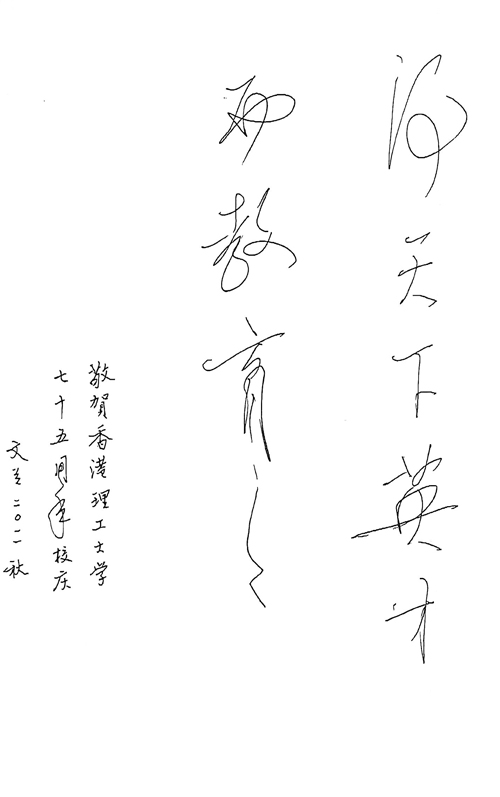 得天下英才
而教育之
敬賀香港理工大学
七十五周年校庆
文兰二〇一一秋